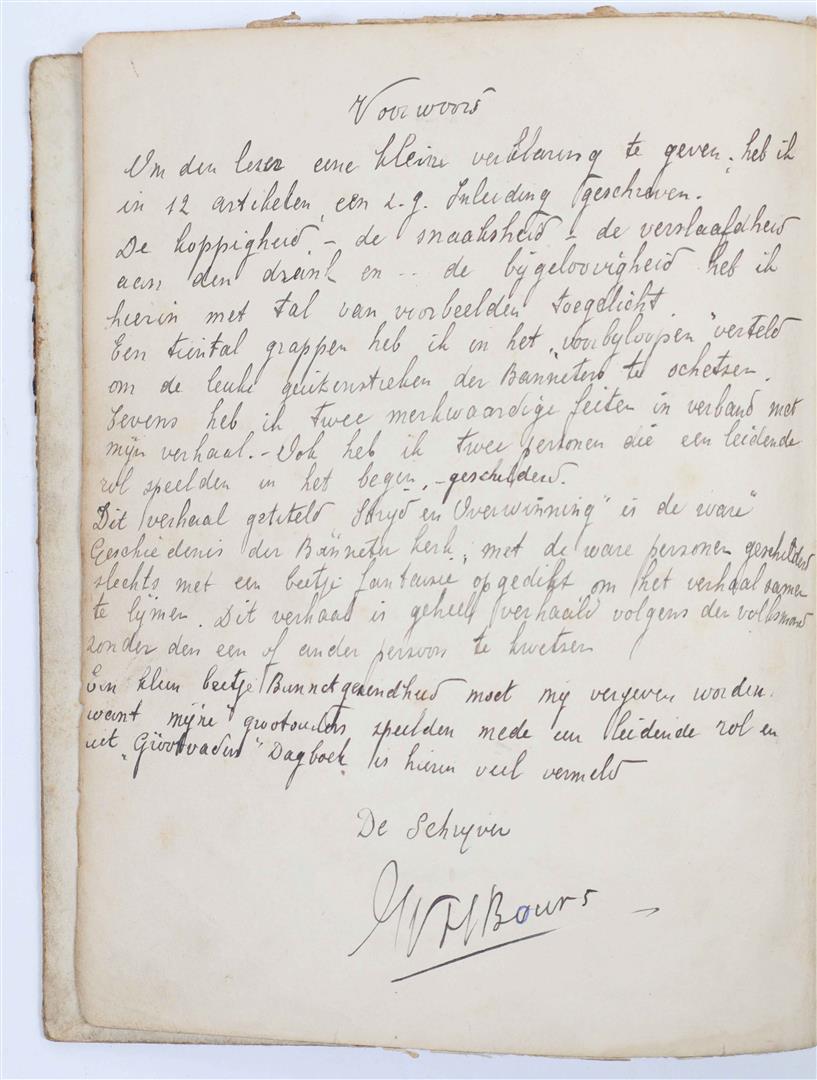 Voorwoord
Om den lezer eene kleine verklaring te geven, heb ik
in 12 artikelen, een z.g. Inleiding geschreven.
De koppigheid - de snaaksheid - de verslaafdheid
aan den drank en -- de bijgeloovigheid heb ik
hierin met tal van voorbeelden toegelicht.
Een tiental grappen heb ik in het "voorbyloopen" verteld
om de leuke guitenstreken der Banneters te schetsen.
Tevens heb ik twee merkwaardige feiten in verband met
mijn verhaal. - Ook heb ik twee personen die een leidende
rol speelden in het begin, - geschilderd.
Dit verhaal getiteld "Strijd en Overwinning" is de ware
Geschiedenis der Banneter kerk, met de ware personen geschilderd
slechts met een beetje fantaisie opgedikt om het verhaal samen
te lijmen. Dit verhaal is geheel verhaald volgens den volksmond
zonder den een of ander persoon te kwetsen
Een klein beetje Bannetgezindheid moet mij vergeven worden.
want mijne grootouders speelden mede een leidende rol en
uit "Grootvaders" Dagboek is hierin veel vermeld
De Schryver
H Bours